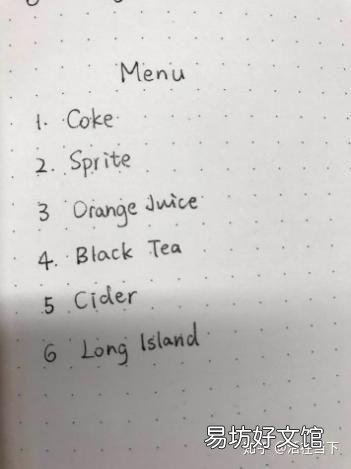 Menu
1. Coke
2. Sprite
3 Orange Juice
4. Black Tea
5 Cider
6 Long Island
易坊好文馆